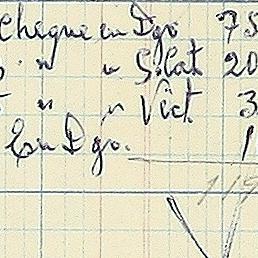 Cheque en Dgo. 75
" " S. Cat 20
" " Vict. 3
En Dgo. 1
119